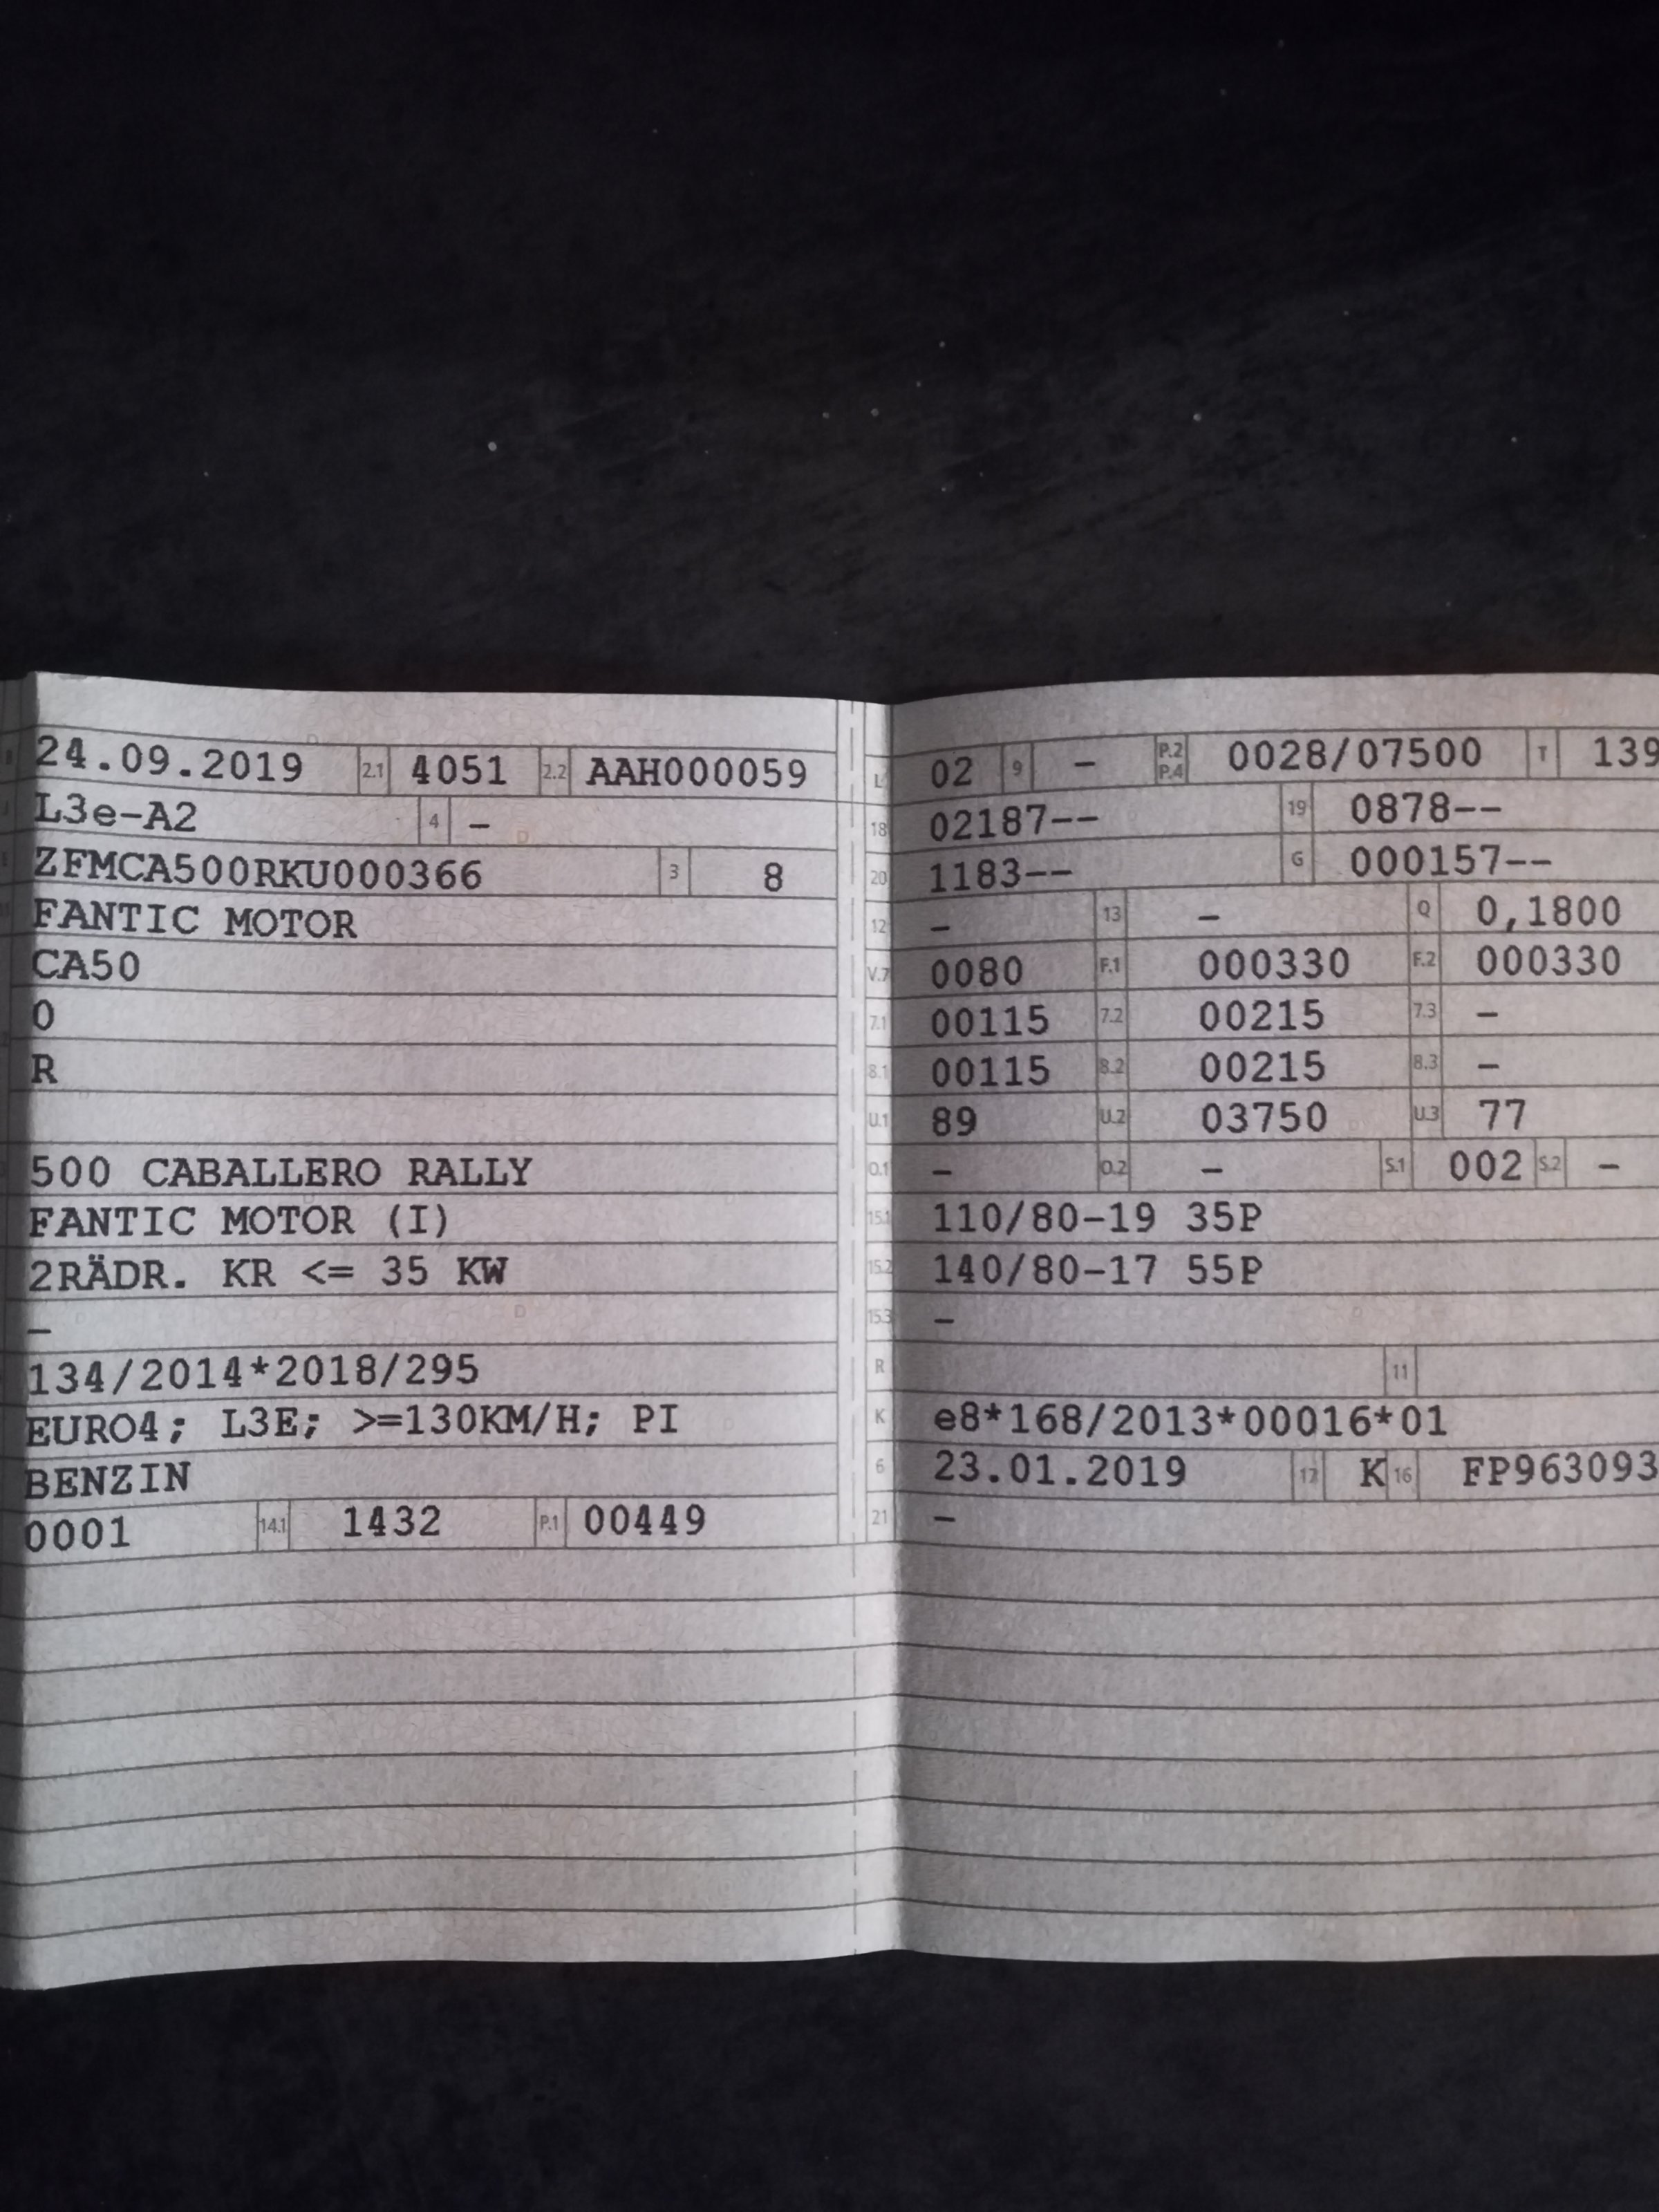 24.09.2019 2.1 4051 2.2 AAH000059
L3e-A2 4 -
ZFMCA500RKU000366 3 8
FANTIC MOTOR
CA50
0
R
500 CABALLERO RALLY
FANTIC MOTOR (I)
2RÄDR. KR <= 35 KW
-
134/2014*2018/295
EURO4; L3E; >=130KM/H; PI
BENZIN
0001 14.1 1432 P.1 00449
L 02 9 - P.2 P.4 0028/07500 T 139
18 02187-- 19 0878--
20 1183-- G 000157--
12 - 13 - Q 0,1800
V.7 0080 F.1 000330 F.2 000330
7.1 00115 7.2 00215 7.3 -
8.1 00115 8.2 00215 8.3 -
U.1 89 U.2 03750 U.3 77
O.1 - O.2 - S.1 002 S.2 -
15.1 110/80-19 35P
15.2 140/80-17 55P
15.3 -
R 11
K e8*168/2013*00016*01
6 23.01.2019 17 K 16 FP963093
21 -